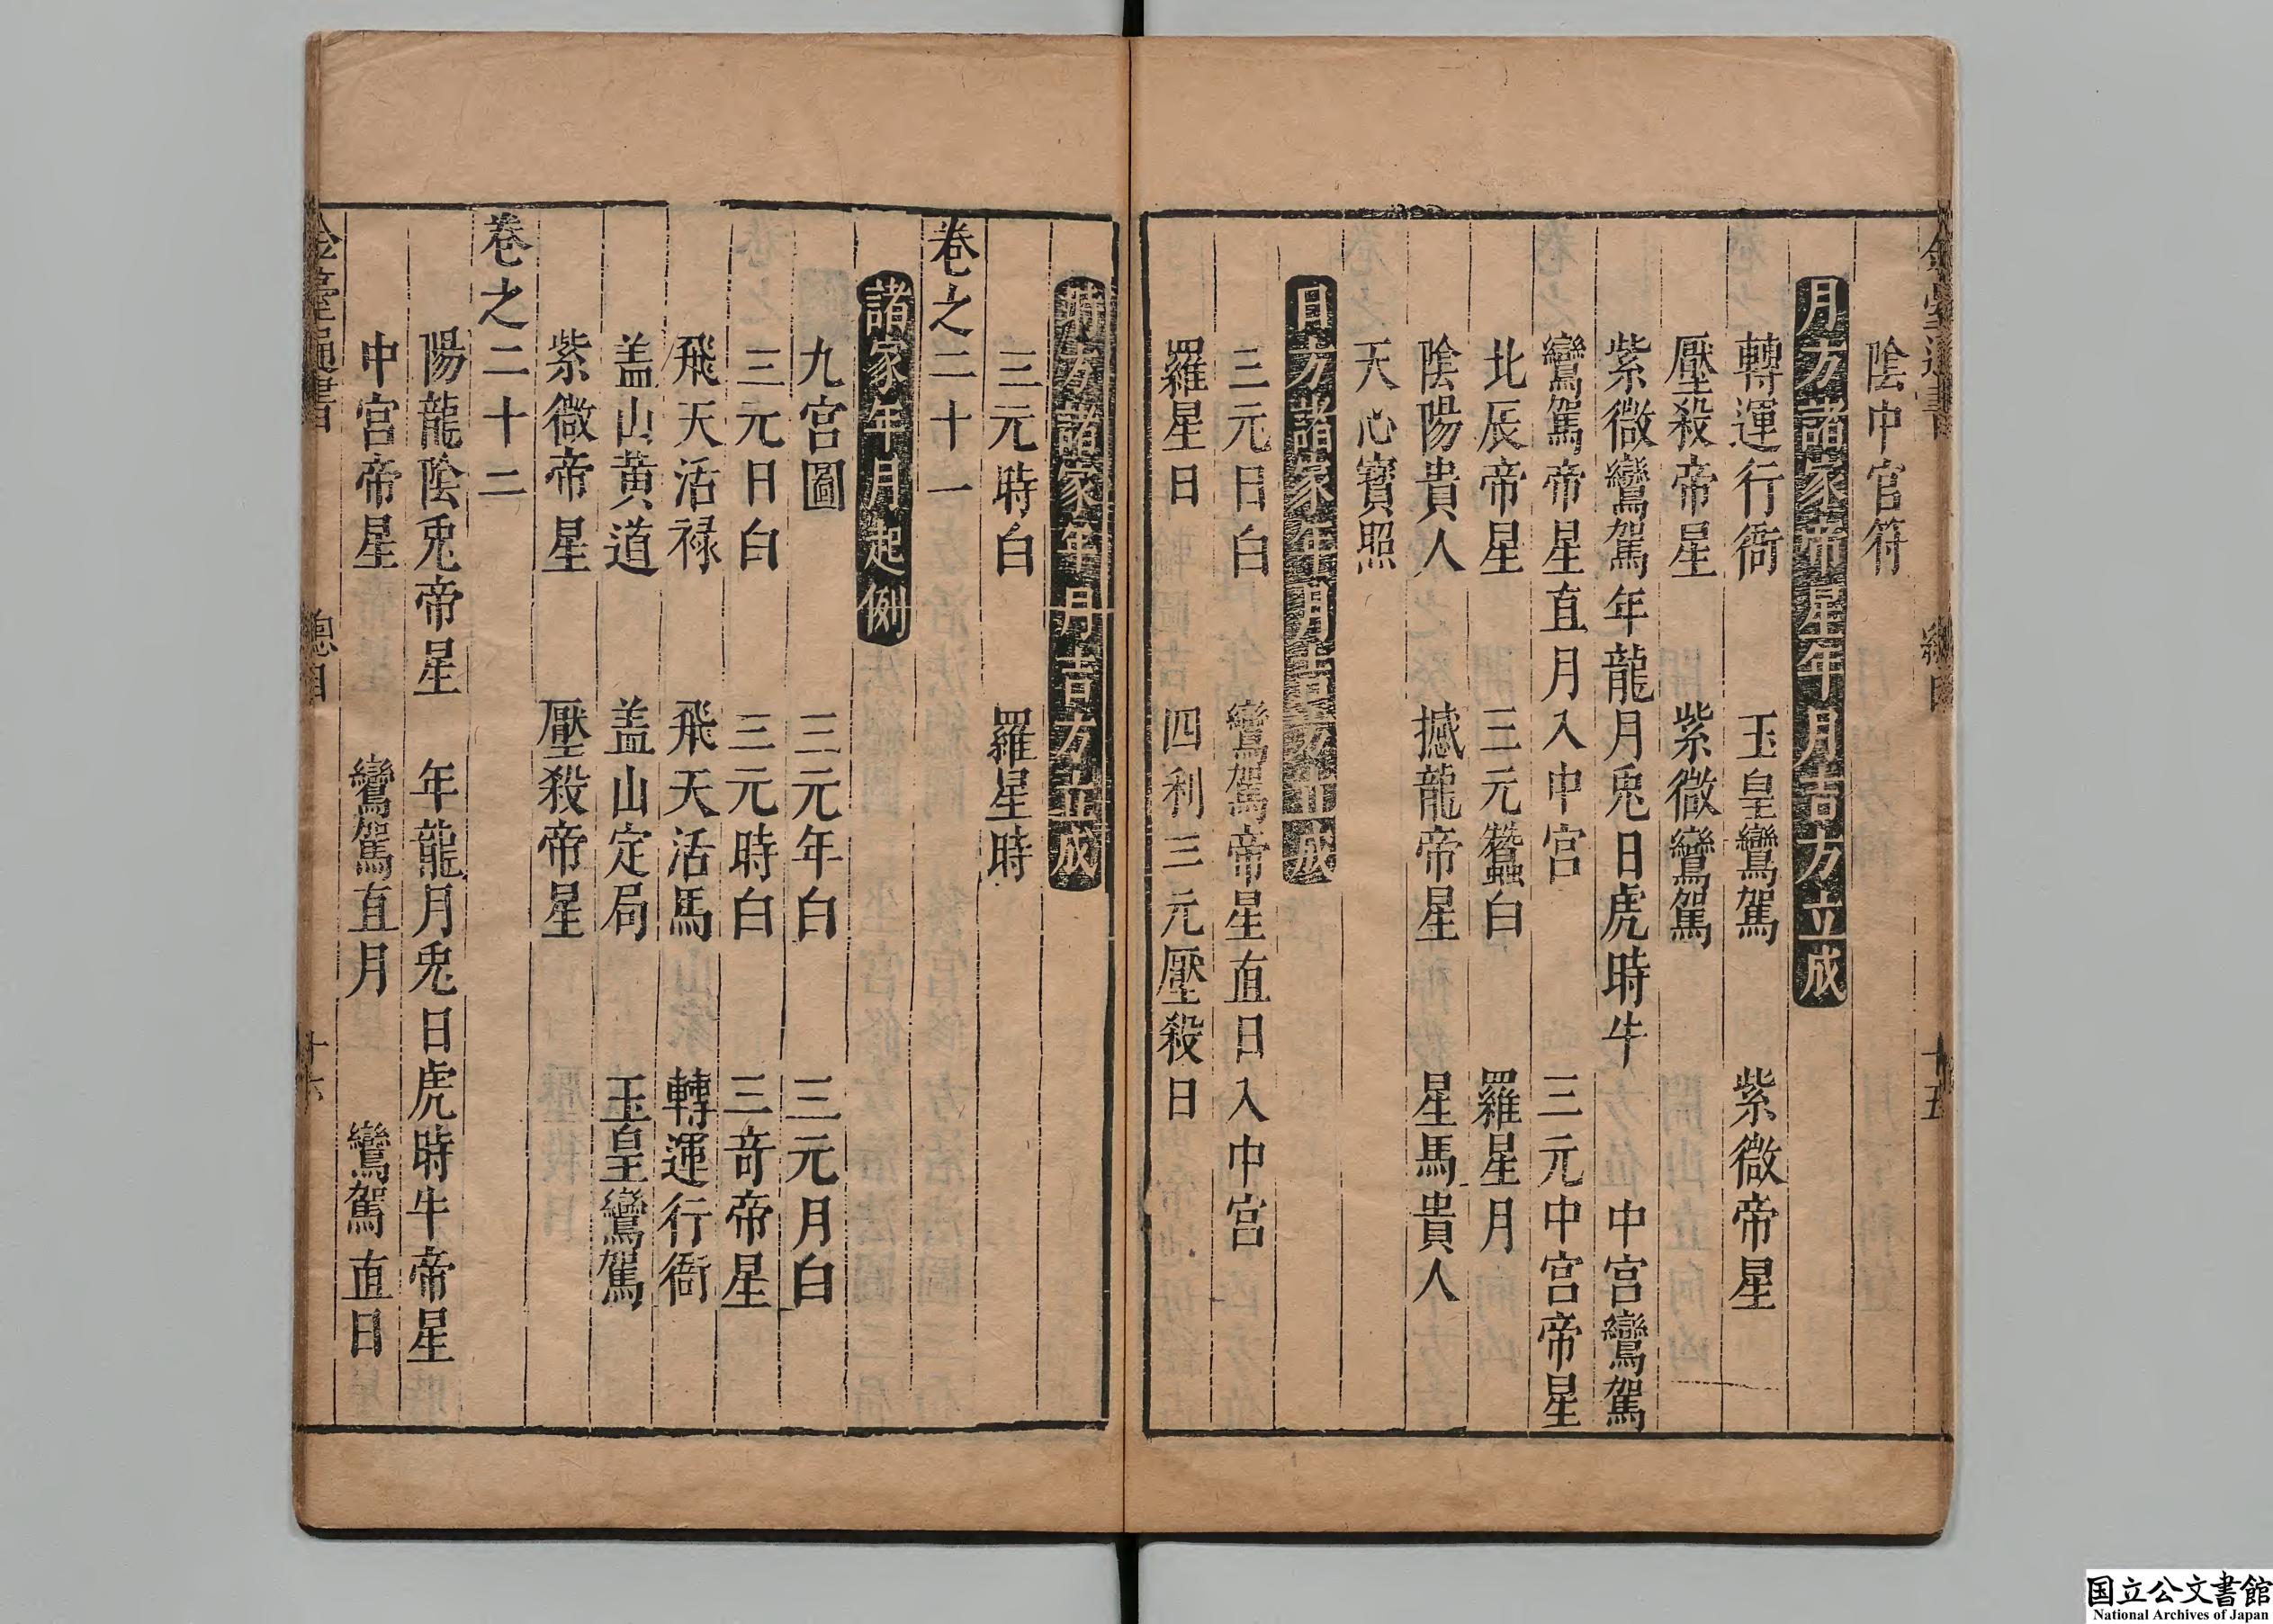 陰中官符
月方諸家帝星年月吉方立成
轉運行衙　玉皇鸞駕　紫微帝星
壓殺帝星　紫微鸞駕
紫微鸞駕年龍月兎日虎時牛　中宮鸞駕
鸞駕帝星直月入中宮　三元中宮帝星
北辰帝星　三元蠶白　羅星月
陰陽貴人　撼龍帝星　星馬貴人
天心寳照
日方諸家年月吉方立成
三元日白　鸞駕帝星直日入中宮
羅星日　四利三元壓殺日
時方諸家年月吉方立成
三元時白　羅星時
卷之二十一
諸家年月起例
九宮圖　三元年白　三元月白
三元日白　三元時白　三竒帝星
飛天活禄　飛天活馬　轉運行衙
盖山黄道　盖山定局　玉皇鸞駕
紫微帝星　壓殺帝星
卷之二十二
陽龍陰兎帝星　年龍月兎日虎時牛帝星
中宮帝星　鸞駕直月　鸞駕直日
通書　總目　十六
国立公文書館
National Archives of Japan